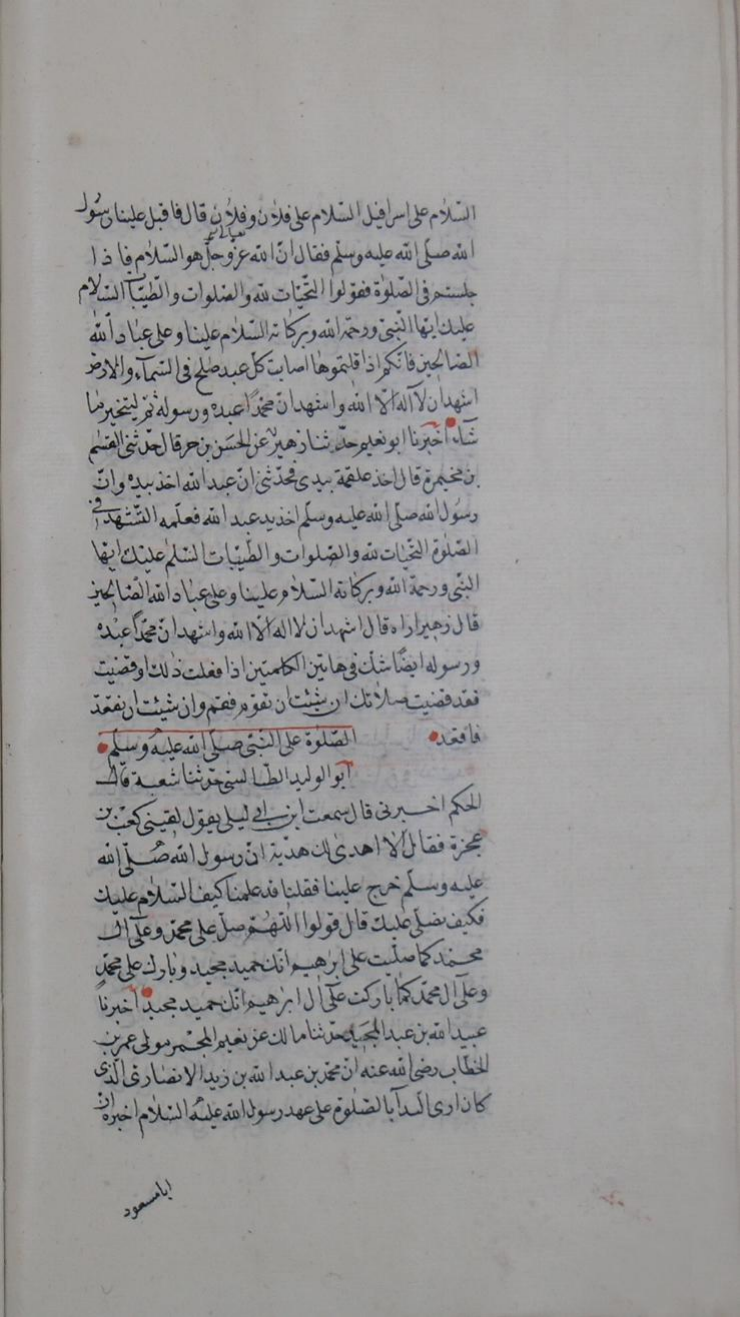 السّلام على اسرافيل السّلام على فلان وفلان قال فاقبل علينا رسول
الله صلّى الله عليه وسلّم فقال انّ الله عزّ وجلّ هو السّلام فاذا
جلستم فى الصّلوة فقولوا التّحيّات لله والصّلوات والطّيّبات السّلام
عليك ايّها النّبىّ ورحمة الله وبركاته السّلام علينا وعلى عباد الله
الصّالحين فانّكم اذا قلتموها اصابت كلّ عبد صلح فى السّمآء والارض
اشهد ان لآ اله الّا الله واشهد انّ محمّدا عبده ورسوله ثمّ ليتخير ما
شآء اخبرنا ابو نعيم حدّثنا زهير عن الحسن بن حر قال حدّثنى القسم
بن مخيمرة قال اخذ علقمة بيدى فحدّثنى انّ عبد الله اخذ بيده وانّ
رسول الله صلّى الله عليه وسلّم اخذ بيد عبد الله فعلّمه التّشهّد فى
الصّلوة التّحيّات لله والصّلوات والطّيّبات السّلم عليك ايّها
النّبى ورحمة الله وبركاته السّلام علينا وعلى عباد الله الصّالحين
قال زهير اراه قال اشهد ان لا اله الّا الله واشهد انّ محمّدًا عبده
ورسوله ايضًا شك فى هاتين الكلمتين اذا فعلت ذلك او قضيت
فقد قضيت صلاتك ان شئت ان تقوم فقم وان شيئت ان تقعد
فاقعد الصّلوة على النّبّى صلّى الله عليه وسلّم
ابو الوليد الطّيالسى حدّثنا شعبة قال
الحكم اخبرنى قال سمعت ابن ابى ليلى يقول لقينى كعب بن
عجزة فقال الا اهدى لك هديّة انّ رسول الله صلّى الله
عليه وسلّم خرج علينا فقلنا قد علمنا كيف السّلام عليك
فكيف نصلّى عليك قال قولوا اللّهمّ صلّ على محمّد وعلى ال
محمّد كما صلّيت على ابرهيم انّك حميد مجيد وبارك على محمّدٍ
وعلى آل محمّد كما باركت على ال ابرهيم انّك حميد مجيد اخبرنا
عبيد الله بن عبد المجيد حدّثنا مالك عن نعيم المجمر مولى عمر بن
الخطّاب رضى الله عنه انّ محمّد بن عبد الله بن زيد الانصارى الّذى
كان ارى النّدآ بالصّلوة على عهد رسول الله عليه السّلام اخبره انّ
ابا مسعود